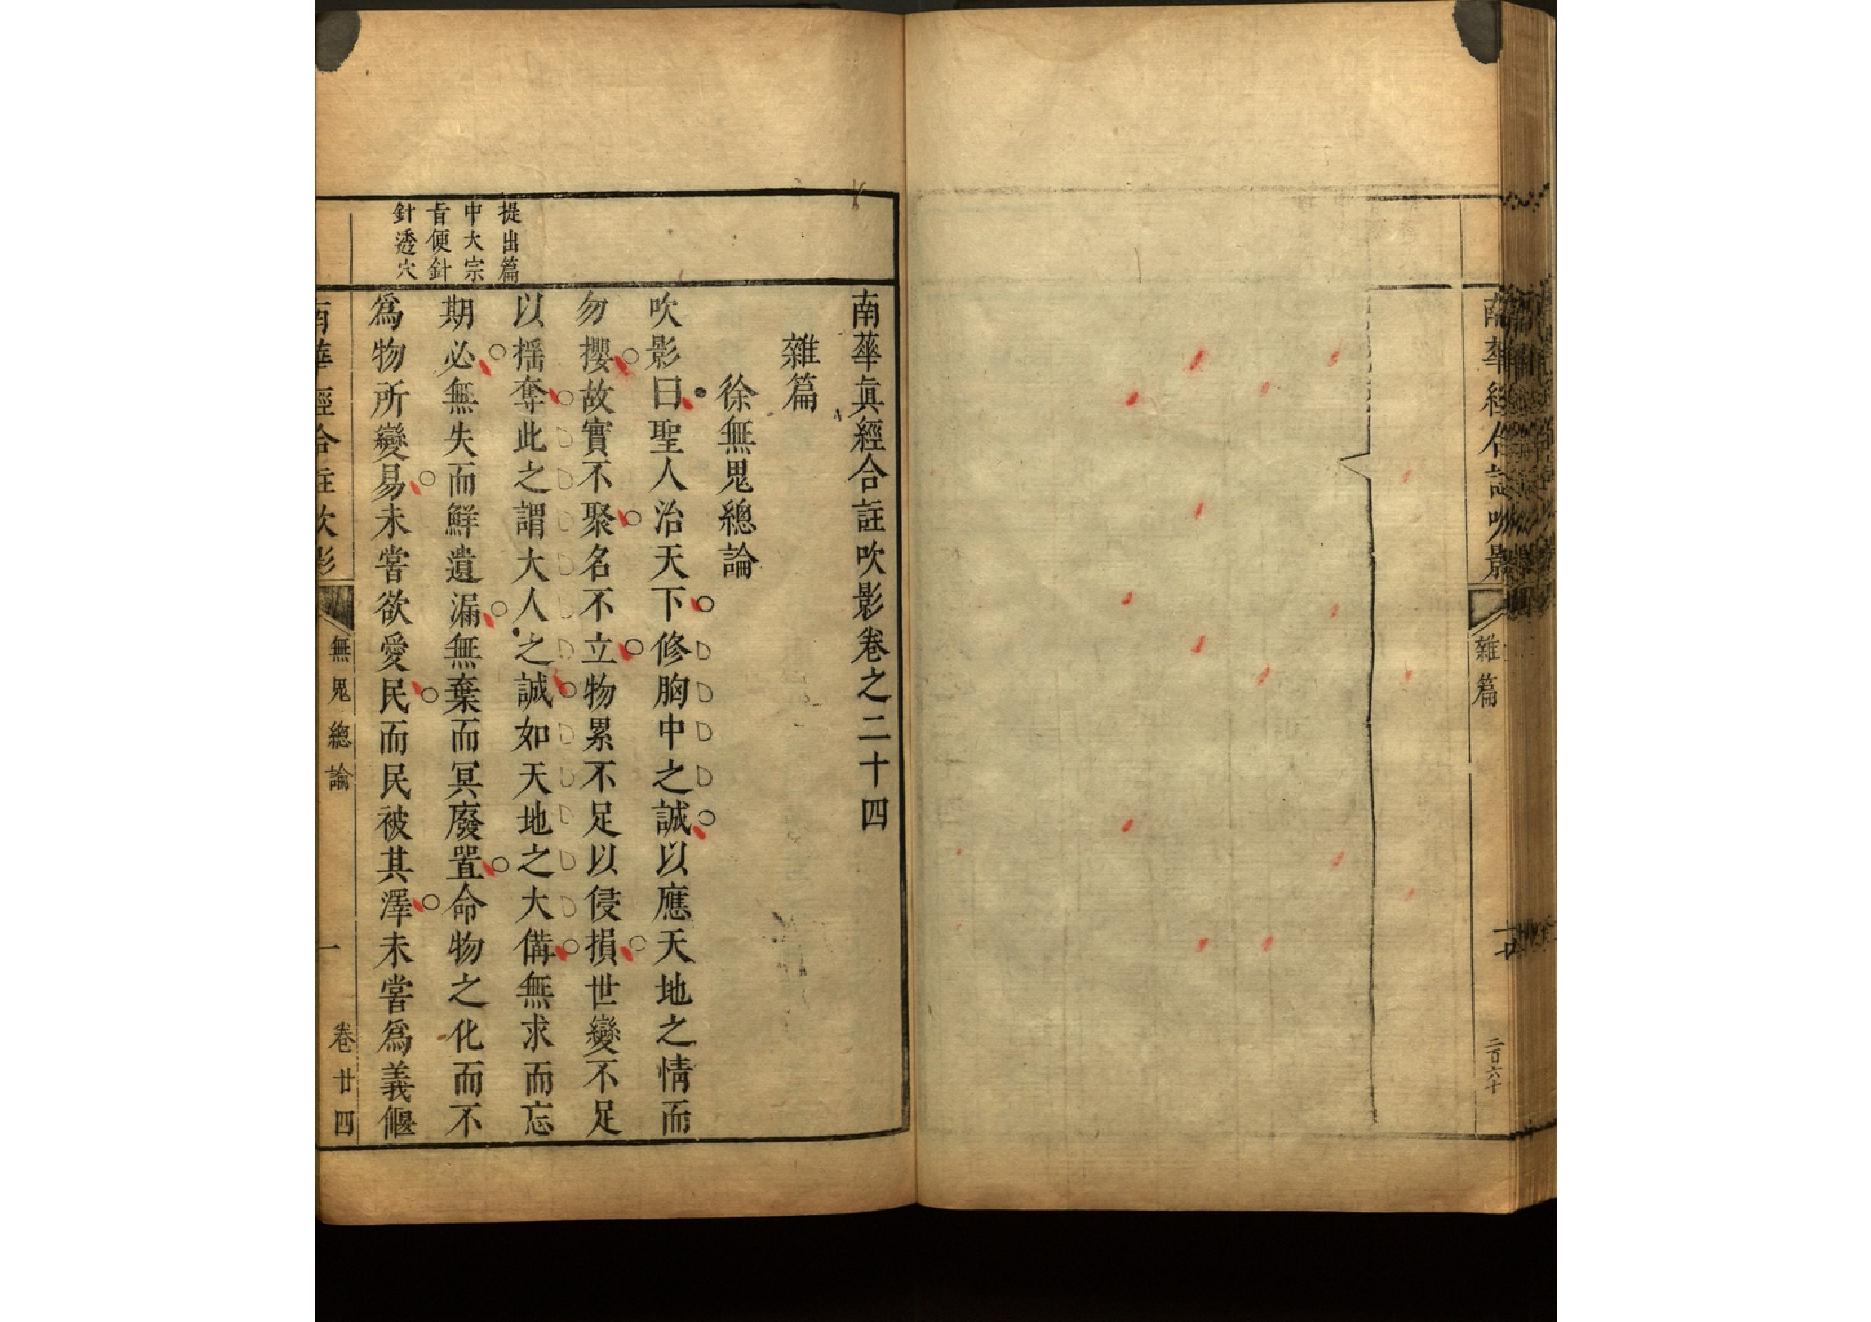 南華經合註吹影
雜篇
二百六十
南華眞經合註吹影卷之二十四
雜篇
徐無鬼總論
提出篇
中大宗
旨便針
針透穴
吹影曰聖人治天下修胸中之誠以應天地之情而
勿攖故實不聚名不立物累不足以侵損世變不足
以搖奪此之謂大人之誠如天地之大備無求而忘
期必無失而鮮遺漏無棄而冥廢置命物之化而不
爲物所變易未嘗欲愛民而民被其澤未嘗爲義偃
南華經合註吹影
無鬼總論
一
卷廿四